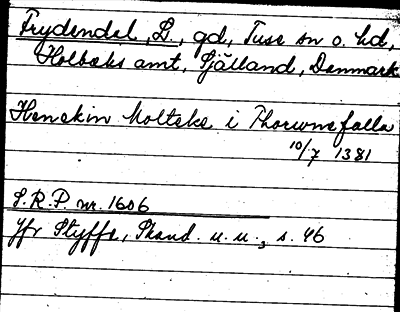 Frydendal, D., gd, Tuse sn o. hd,
Holbæks amt, Själland, Danmark
Henekin Molteke i Thorunefalla
10/7 1381
S.R.P. nr. 1606
Jfr Styffe, Skand. u. u., s. 46